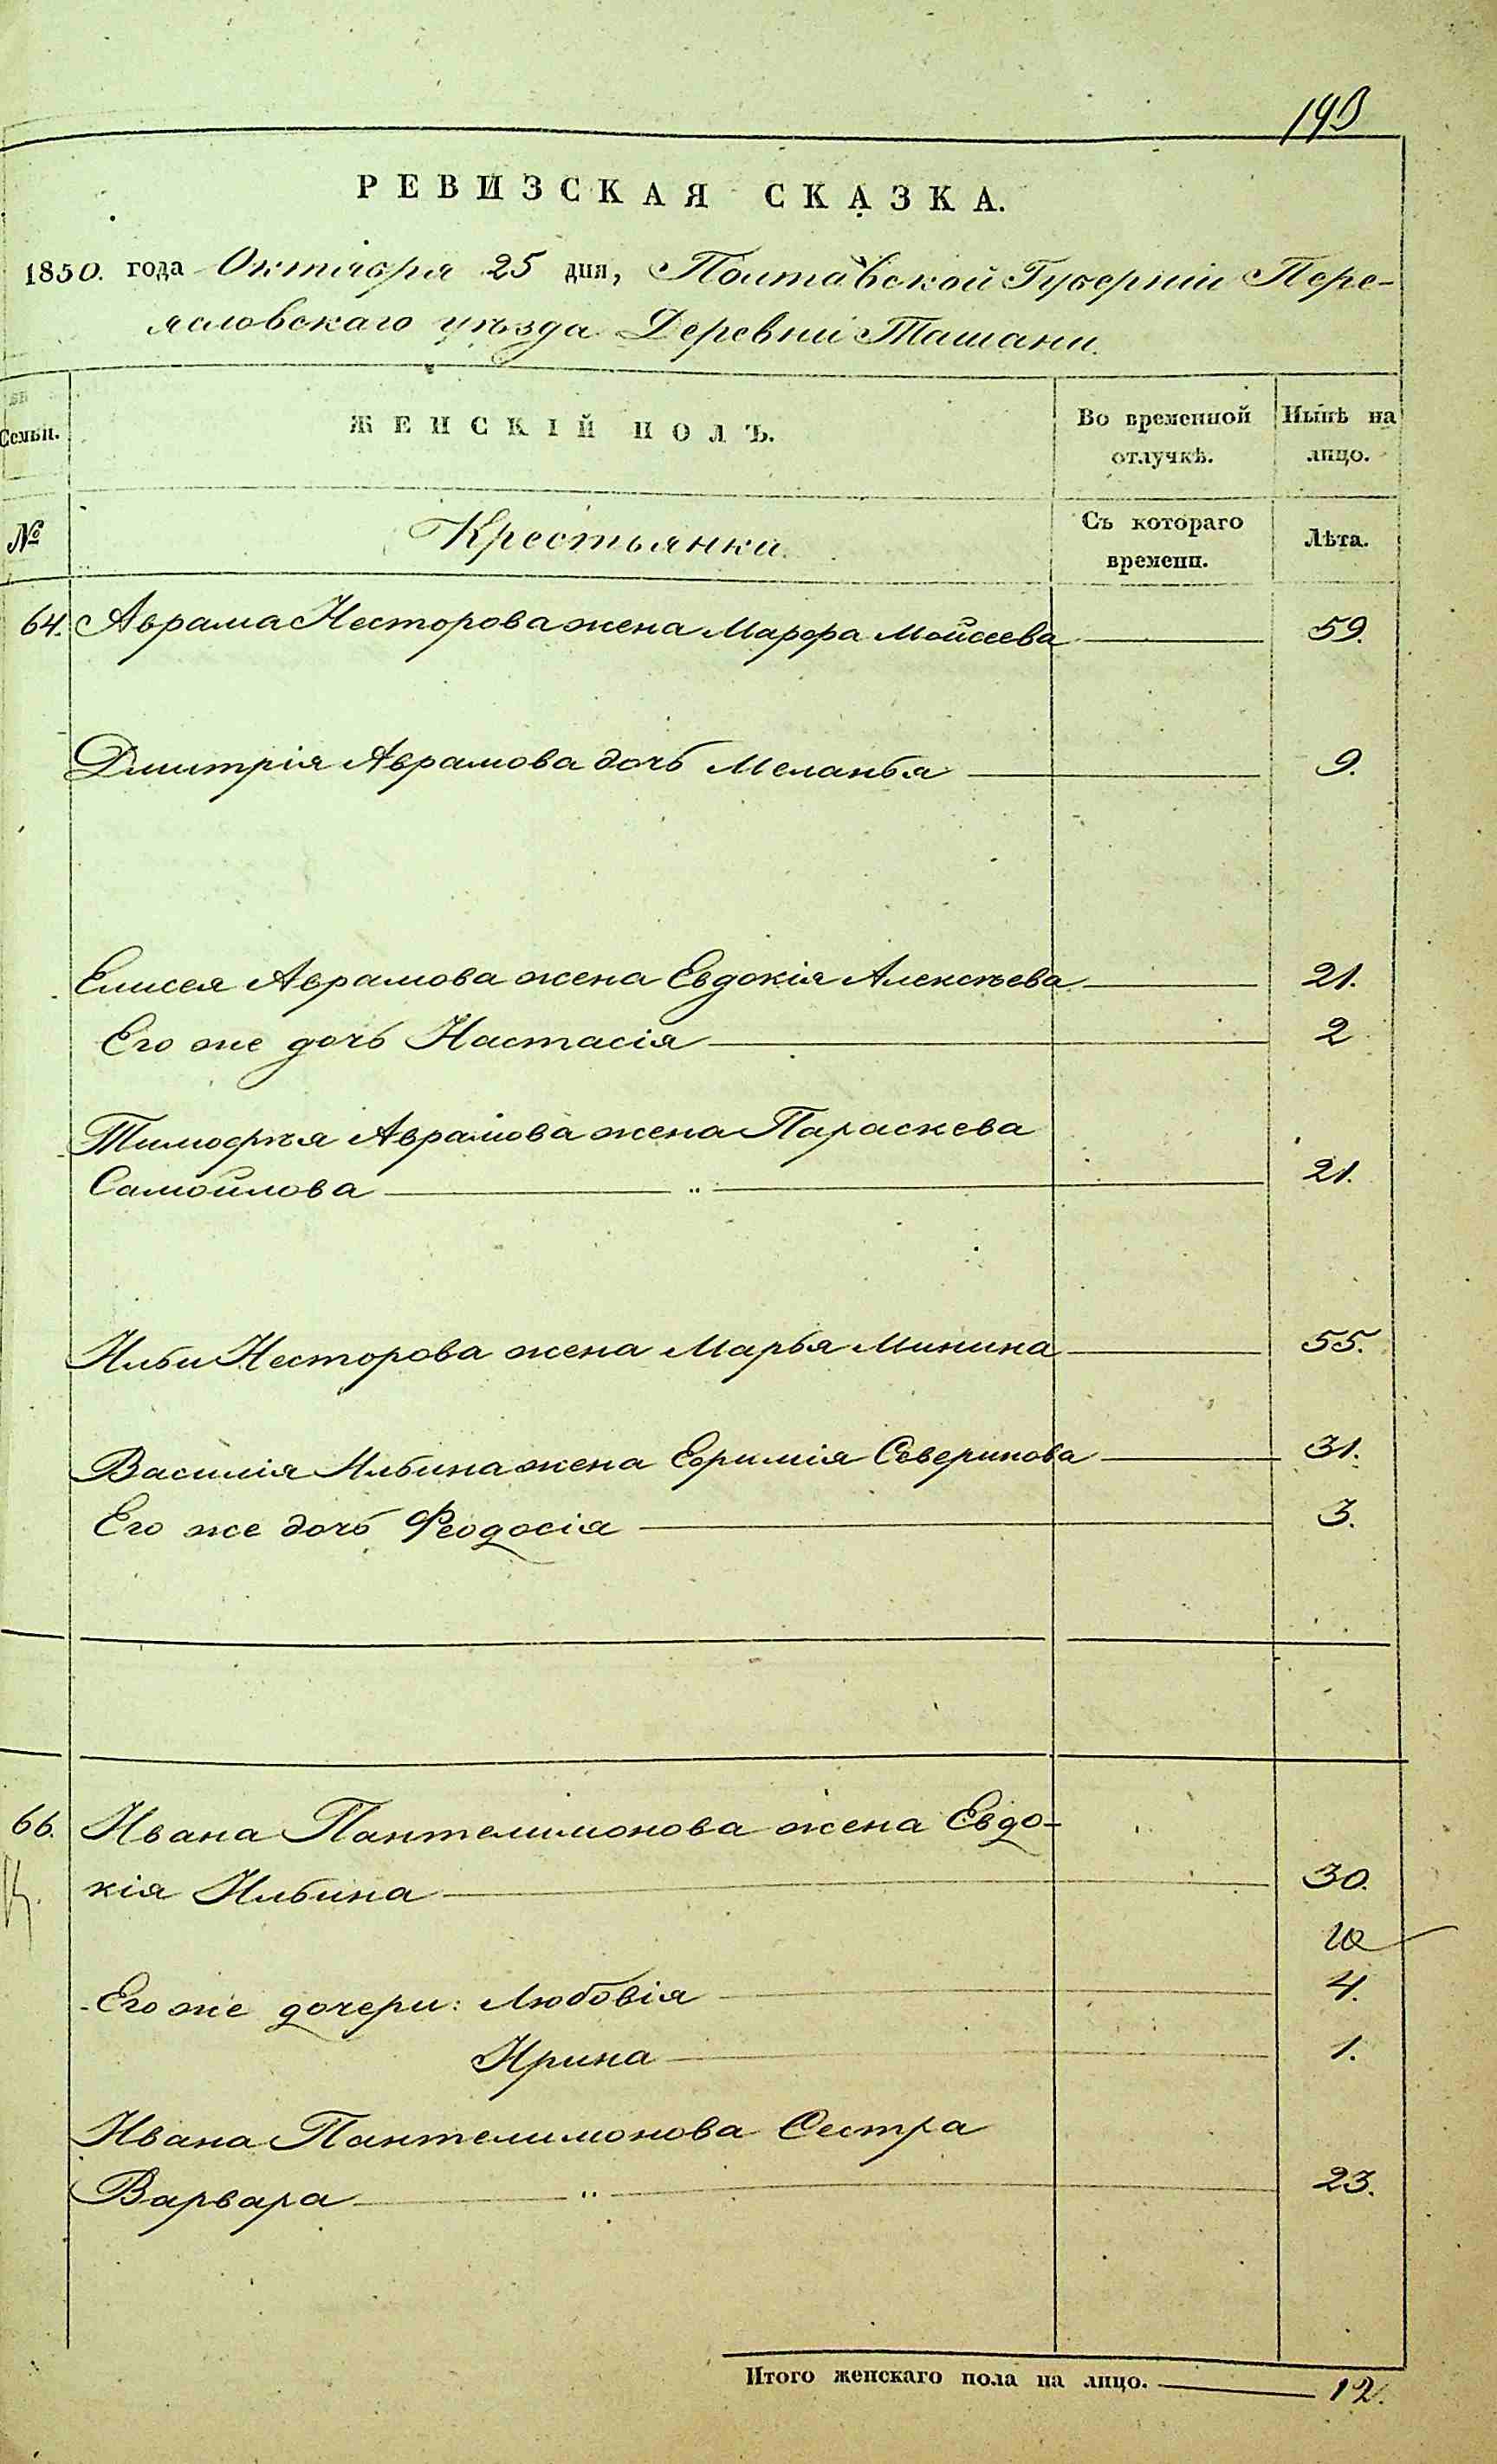 193
РЕВИЗСКАЯ СКАЗКА.
1850. года Октября 25 дня, Полтавской Губерніи Пере-
яславскаго уѣзда Деревни Ташани.
Семьи.
ЖЕНСКІЙ ПОЛЪ.
Во временной отлучкѣ.
Нынѣ на лицо.
№
Крестьянки.
Съ котораго времени.
Лѣта.
64. Аврама Несторова жена Марфа Мойсеева 59.
Дмитрія Аврамова дочь Меланья 9.
Елисея Аврамова жена Евдокія Алексѣева 21.
Его же дочь Настасія 2
Тимофѣя Аврамова жена Параскева
Самойлова " 21.
Ильи Несторова жена Марья Минина 55.
Василія Ильина жена Ефимія Северинова 31.
Его же дочь Феодосія 3.
66. Ивана Пантелимонова жена Евдо-
кія Ильина 30.
Его же дочери: Любовія 4.
Ирина 1.
Ивана Пантелимонова Сестра
Варвара " 23.
Итого женскаго пола на лицо. 12.